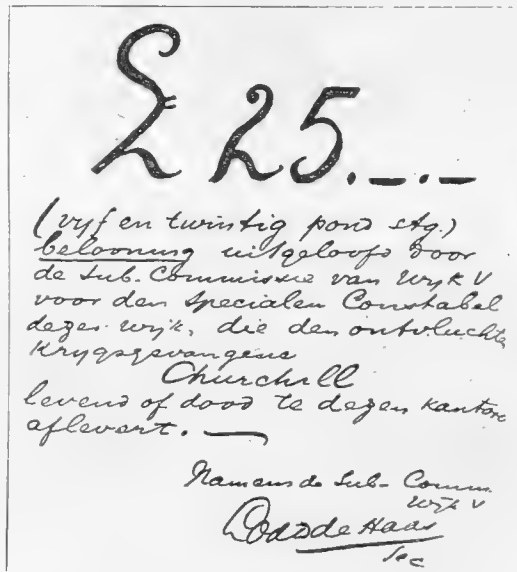 £ 25.—.—
(vijf en twintig pond stg.)
belooning uitgeloofd door
de Sub-Commissie van Wijk V
voor den Specialen Constabel
dezer wijk, die den ontvluchten
Krygsgevangene
Churchill
levend of dood te dezen kantore
aflevert. —
Namens de Sub-Comm.
Wijk V
de Haas
Sec